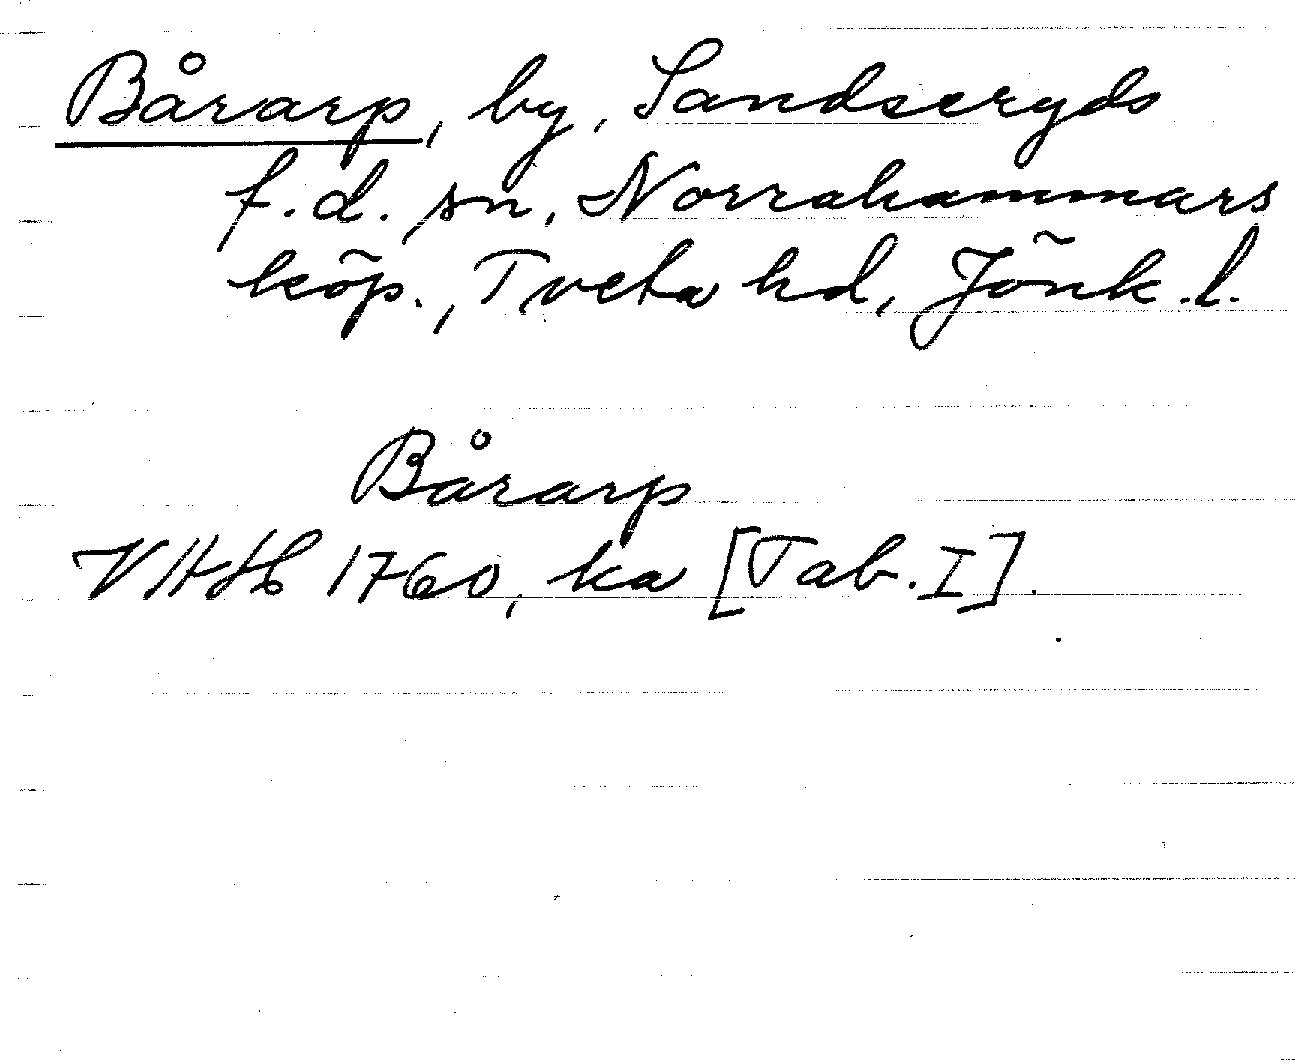 Bårarp, by, Sandseryds
f.d. sn, Norrahammars
köp., Tveta hd, Jönk.l.
Bårarp
1760, ka [Tab. I].